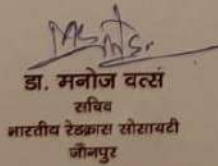 डा. मनोज वत्स
सचिव
भारतीय रेडक्रास सोसायटी
जौनपुर